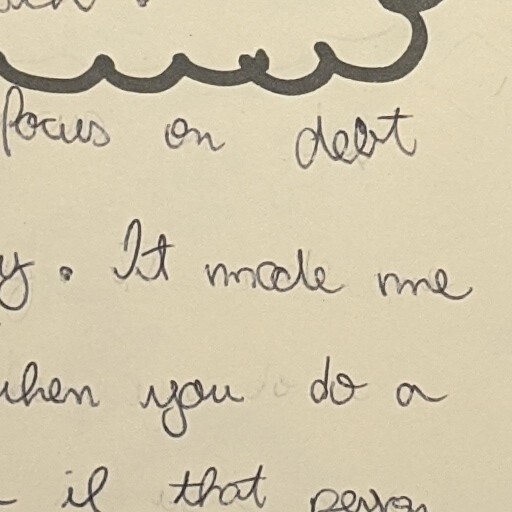 focus on debt
y. It made me
when you do a
if that person